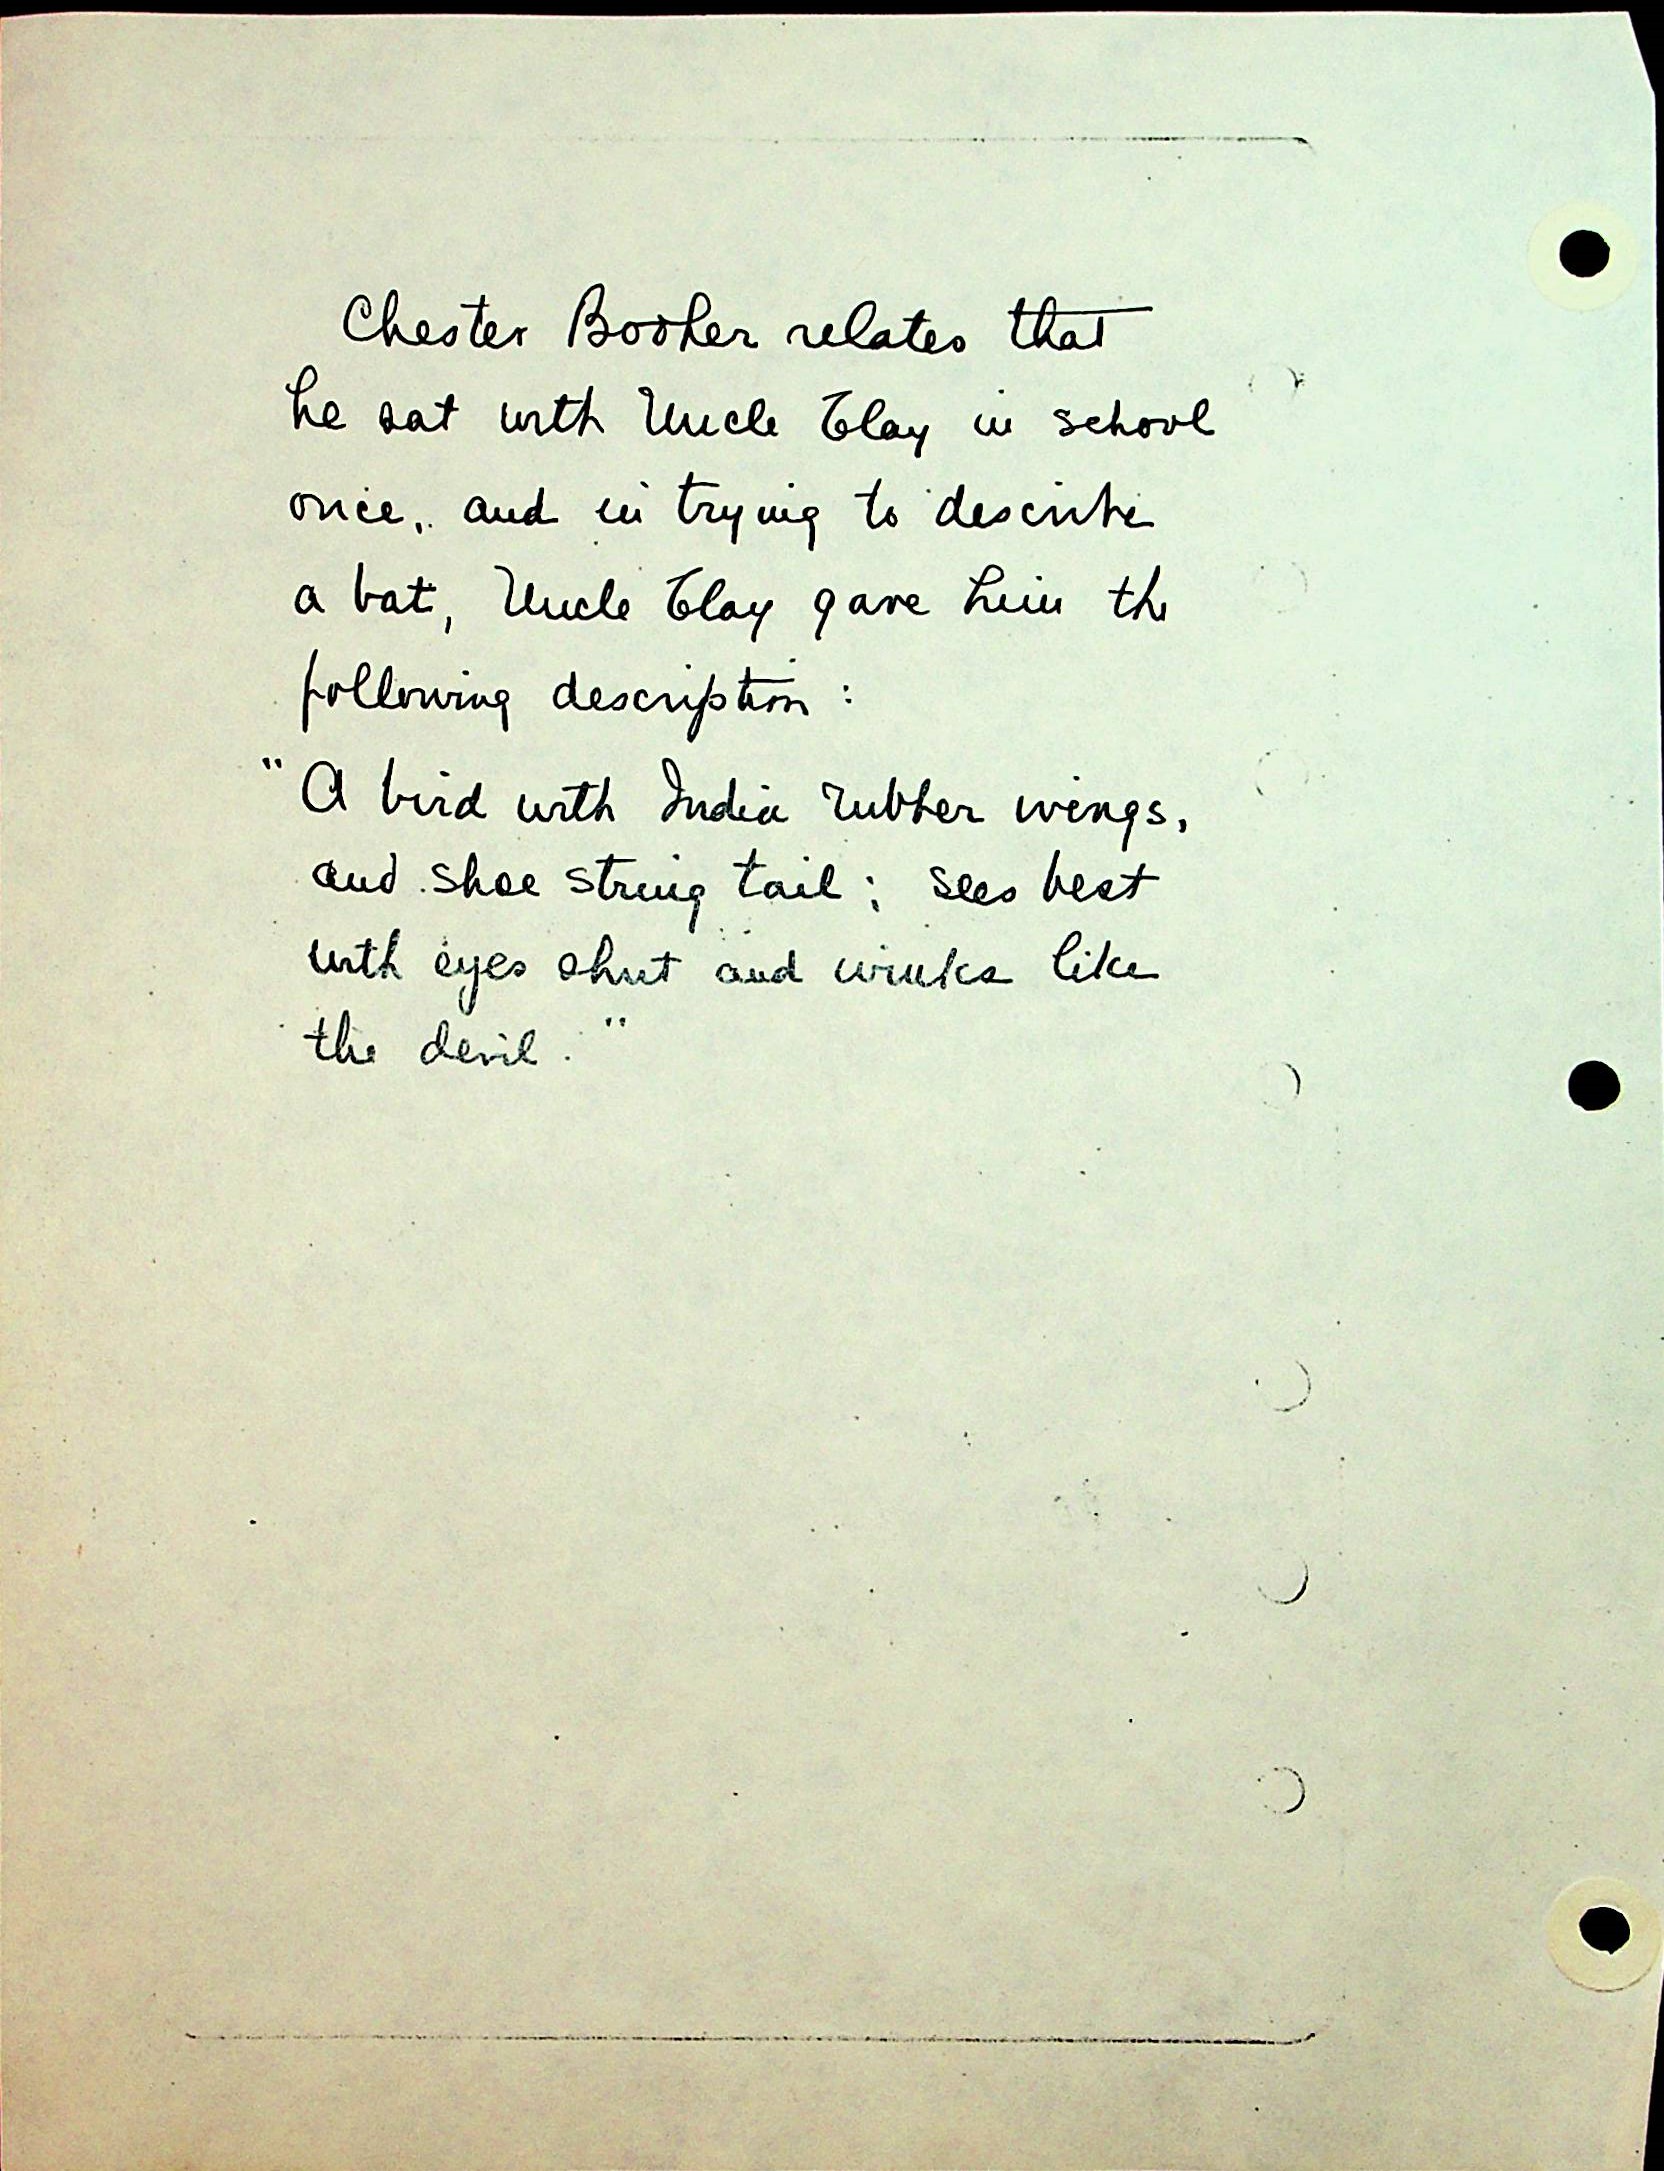 Chester Booher relates that
he sat with Uncle Clay in school
once, and in trying to describe
a bat, Uncle Clay gave him the
following description:
"A bird with India rubber wings,
and shoe string tail; sees best
with eyes shut and winks like
the devil."